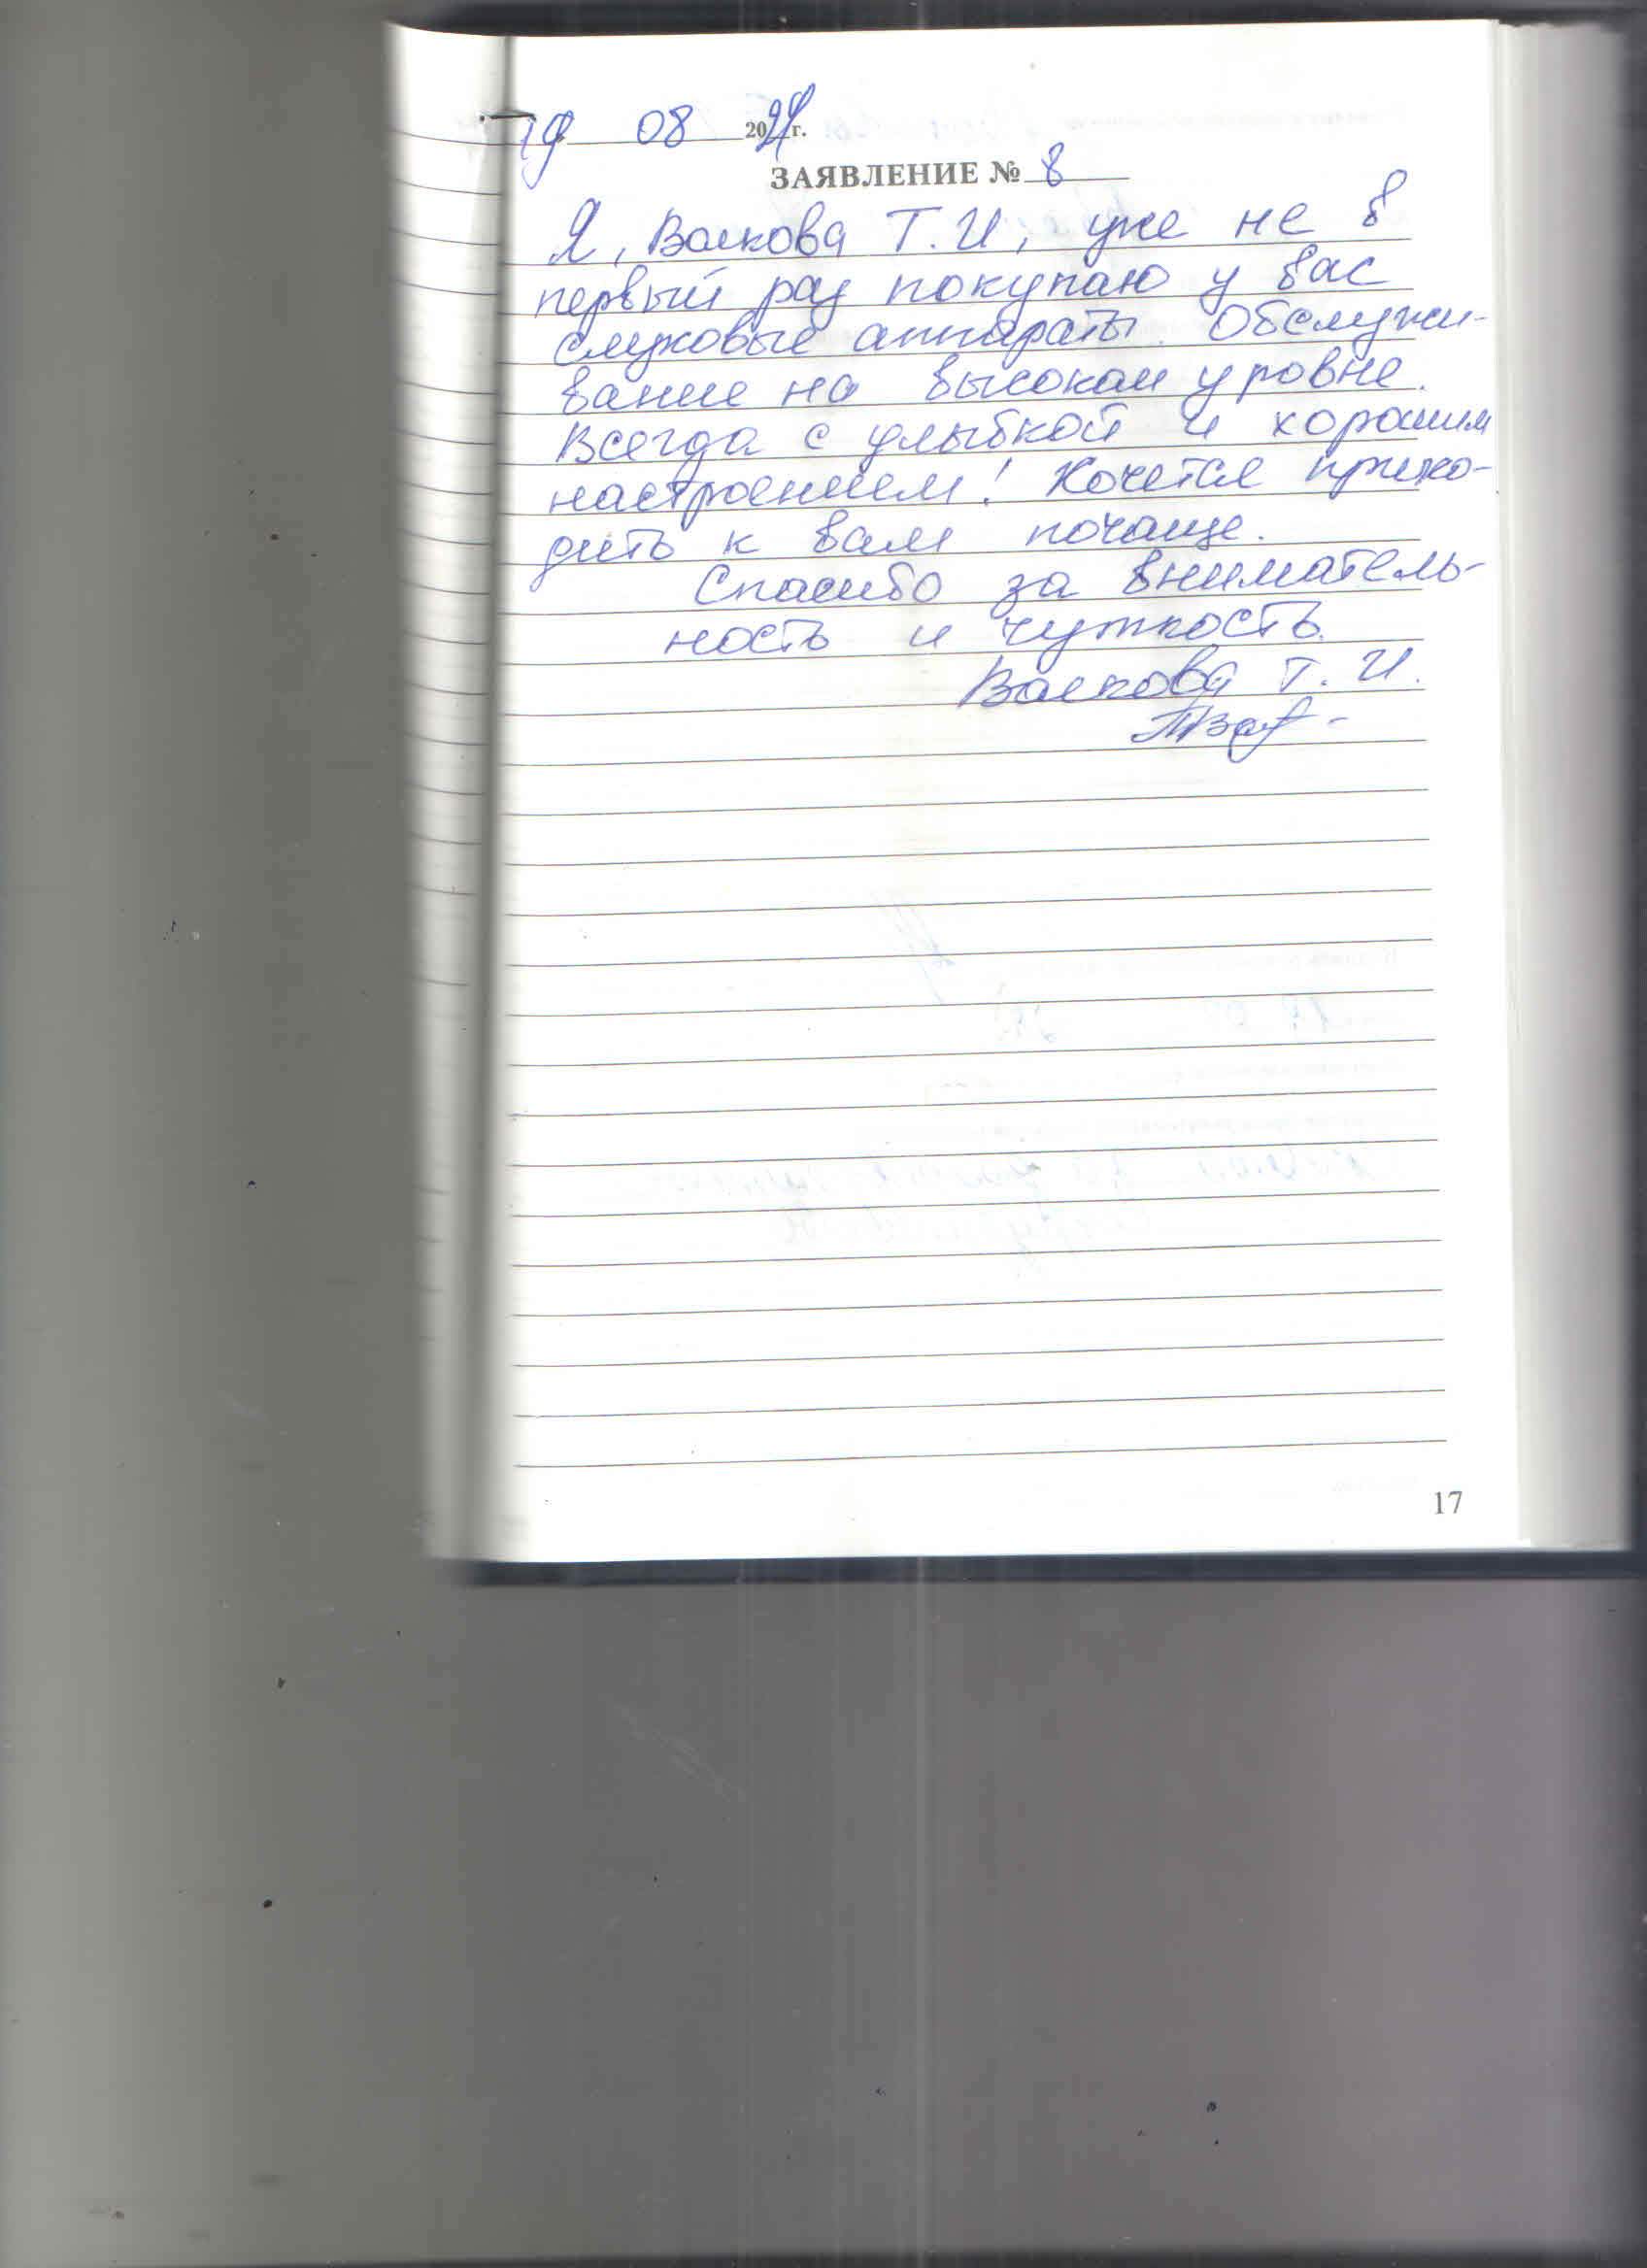 19 08 2024г.
ЗАЯВЛЕНИЕ № 8
Я, Волкова Т.И, уже не в
первый раз покупаю у вас
слуховые аппараты. Обслужи-
вание на высоком уровне.
Всегда с улыбкой и хорошим
настроением! Хочется прихо-
дить к вам почаще.
Спасибо за вниматель-
ность и чуткость.
Волкова Т. И.
17